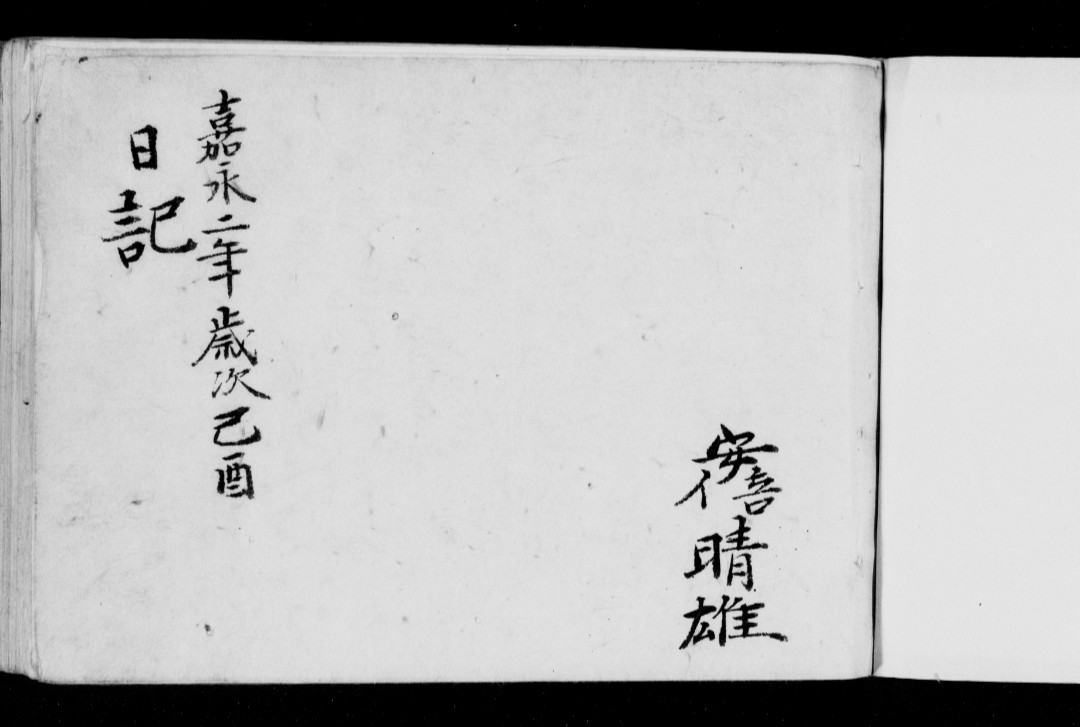 安倍晴雄
嘉永二年歳次己酉
日記